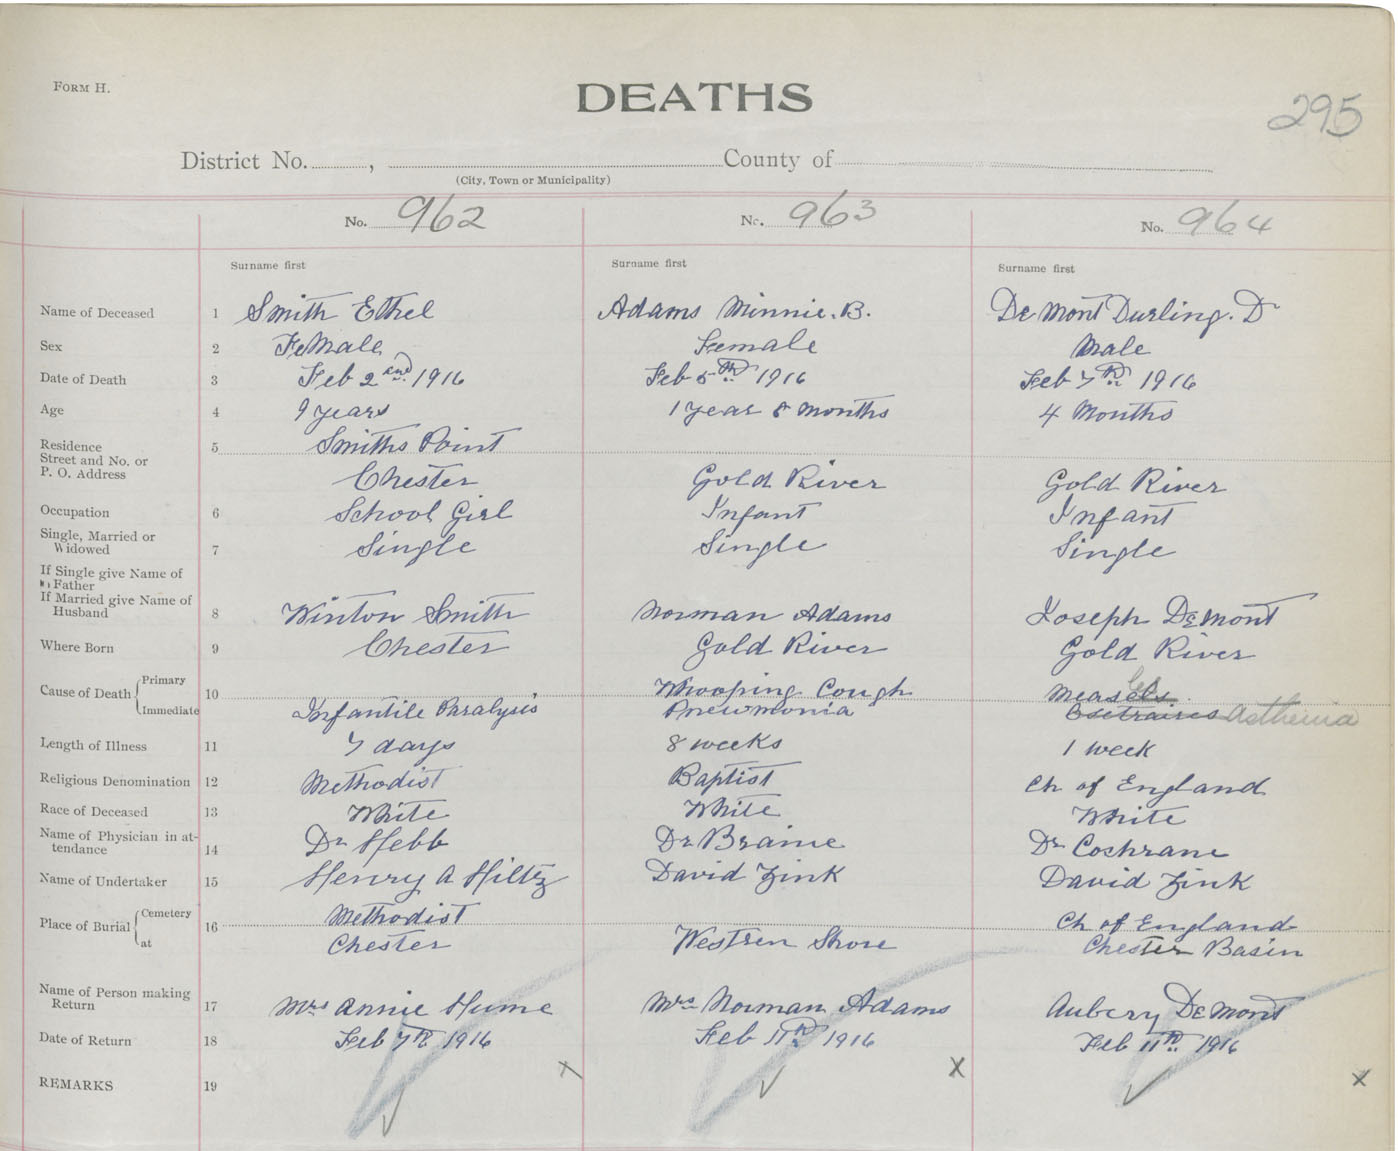 FORM H.
DEATHS
295
District No. , County of
(City, Town or Municipality)
No. 962 No. 963 No. 964
Surname first Surname first Surname first
Name of Deceased 1 Smith Ethel Adams Minnie. B. DeMont Durling. D
Sex 2 FeMale Female Male
Date of Death 3 Feb 2nd 1916 Feb 5th 1916 Feb 7th 1916
Age 4 9 years 1 year 8 months 4 Months
Residence 5 Smiths Point
Street and No. or
P. O. Address Chester Gold River Gold River
Occupation 6 School Girl Infant Infant
Single, Married or
Widowed 7 Single Single Single
If Single give Name of
Father
If Married give Name of
Husband 8 Winton Smith Norman Adams Joseph DeMont
Where Born 9 Chester Gold River Gold River
Cause of Death Primary 10 Whooping Cough Measels
Immediate Infantile Paralysis Pneumonia Asthenia
Length of Illness 11 7 days 8 weeks 1 week
Religious Denomination 12 Methodist Baptist Ch of England
Race of Deceased 13 White White White
Name of Physician in at-
tendance 14 Dr Hebb Dr Braine Dr Cochrane
Name of Undertaker 15 Henry A Hiltz David Zink David Zink
Place of Burial Cemetery 16 Methodist Ch of England
at Chester Westren Shore Chester Basin
Name of Person making
Return 17 Mrs Annie Hume Mrs Norman Adams Aubery DeMont
Date of Return 18 Feb 7th 1916 Feb 11th 1916 Feb 11th 1916
REMARKS 19 x x x